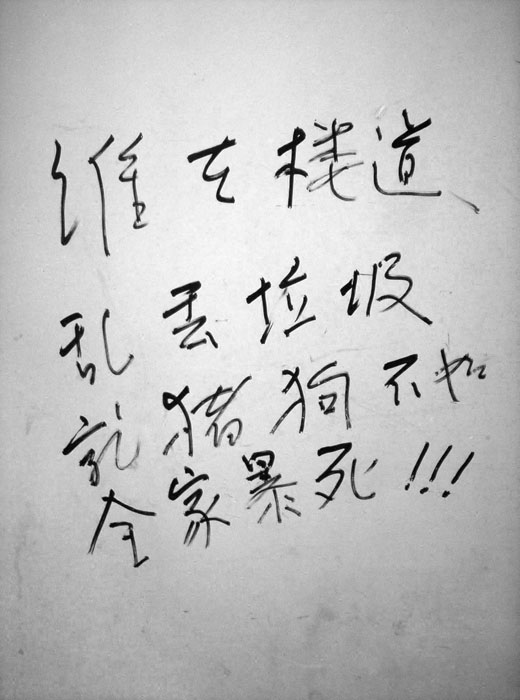 谁在楼道
乱丢垃圾
就猪狗不如
全家暴死!!!